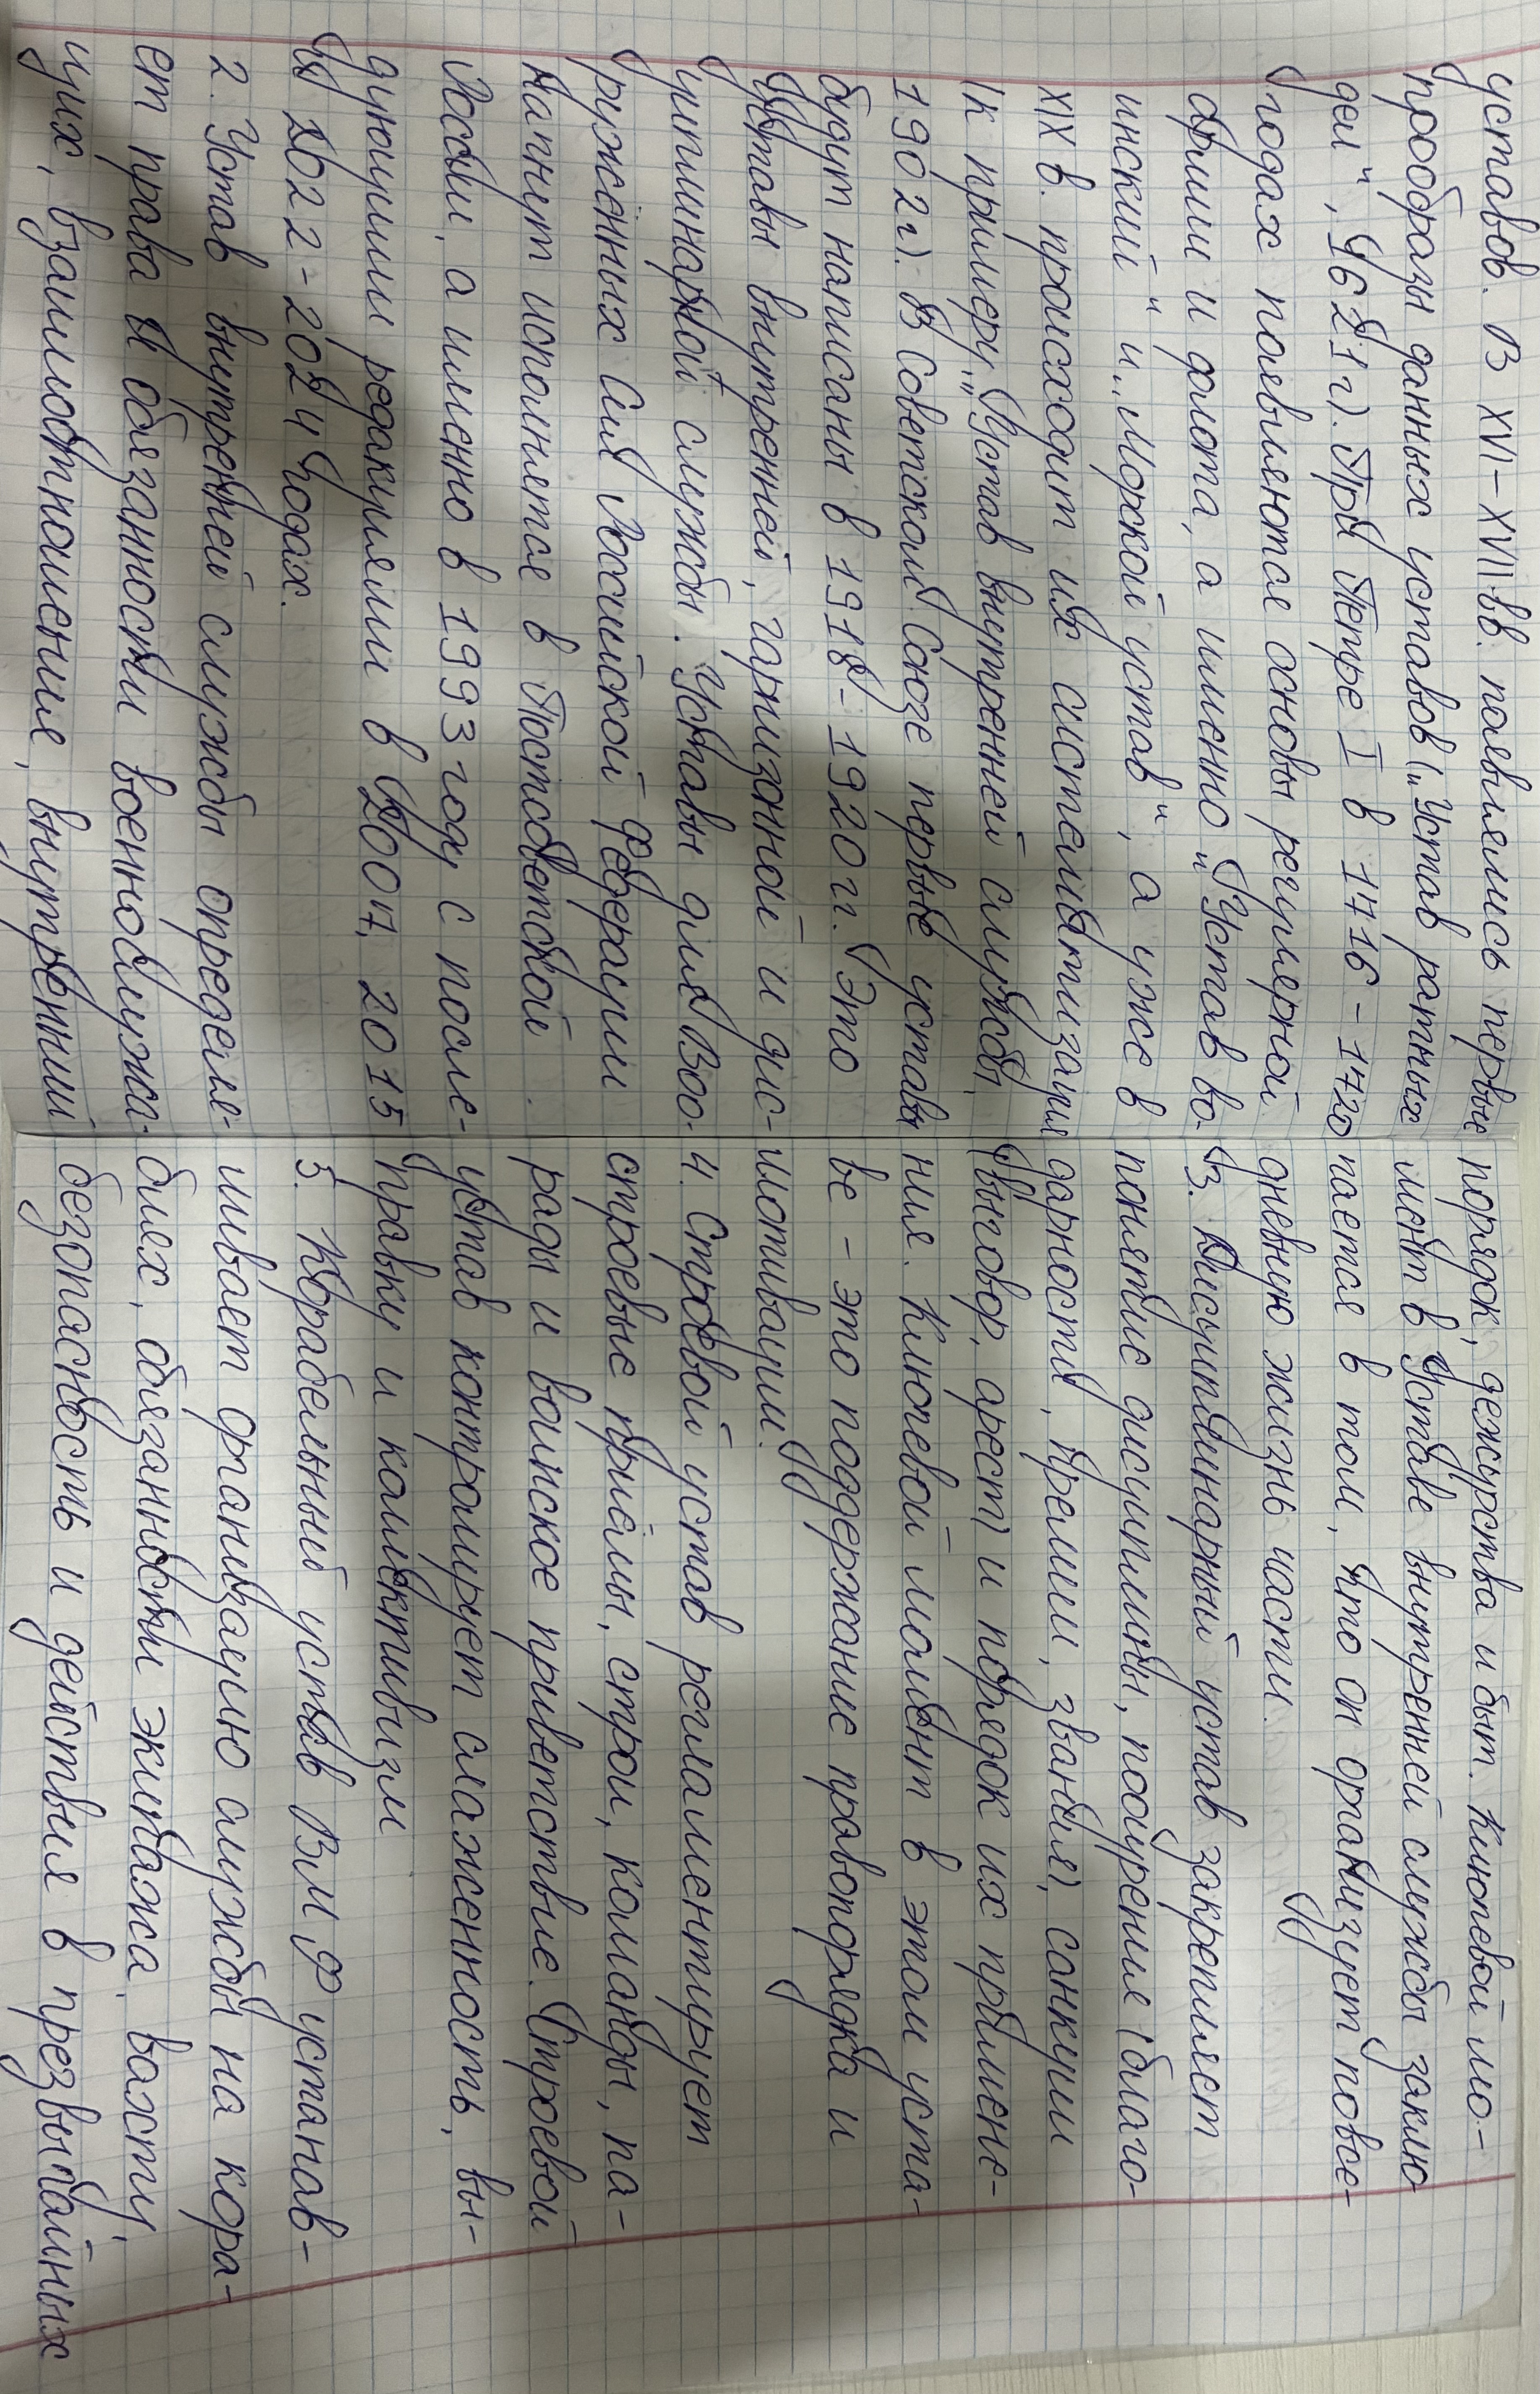 уставов. В XVI-XVII вв. появились первые
прообразы данных уставов („Устав ратных
дел", 1621 г). При Петре I в 1716-1720
годах появляются основы регулярной
армии и флота, а именно „Устав во-
инский" и „Морской устав", а уже в
XIX в. происходит их систематизация
(к примеру, „Устав внутренней службы,
1902 г). В Советском Союзе первые уставы
будут написаны в 1918-1920 гг. Это
уставы внутренней, гарнизонной и дис-
циплинарной службы. Уставы для Воо-
ружённых Сил Российской Федерации
начнут исполняться в Постсоветской
России, а именно в 1993 году с после-
дующими редакциями в 2007, 2015
и 2022-2024 годах.
2. Устав внутренней службы определя-
ет права и обязанности военнослужа-
щих, взаимоотношение, внутренний
порядок, дежурства и быт. Ключевой мо-
мент в Уставе внутренней службы заклю-
чается в том, что он организует повсе-
дневную жизнь части.
3. Дисциплинарный устав закрепляет
понятие дисциплины, поощрения (благо-
дарности, премии, звания), санкции
(выговор, арест) и порядок их примене-
ния. Ключевой момент в этом уста-
ве - это поддержание правопорядка и
мотивации.
4. Строевой устав регламентирует
строевые приёмы, строи, команды, па-
рады и воинское приветствие. Строевой
устав контролирует слаженность, вы-
правку и коллективизм
5. Корабельный устав ВМФ устанав-
ливает организацию службы на кора-
блях, обязанности экипажа, вахты,
безопасность и действия в чрезвычайных